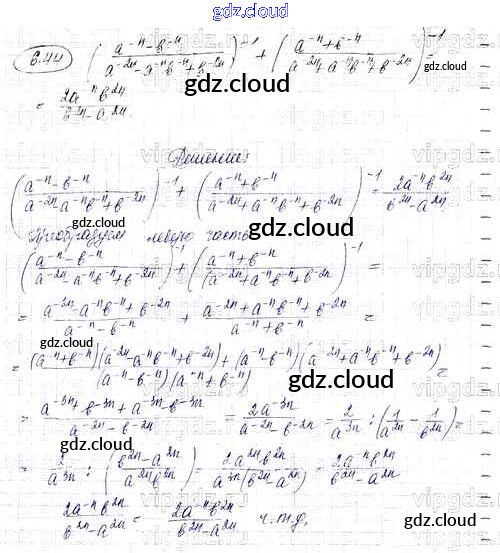 gdz.cloud
6.44 ((a⁻ⁿ-b⁻ⁿ)/(a⁻²ⁿ-a⁻ⁿb⁻ⁿ+b⁻²ⁿ))⁻¹ + ((a⁻ⁿ+b⁻ⁿ)/(a⁻²ⁿ+a⁻ⁿb⁻ⁿ+b⁻²ⁿ))⁻¹ =
= 2a⁻ⁿb²ⁿ/(b²ⁿ-a²ⁿ).
Решение:
((a⁻ⁿ-b⁻ⁿ)/(a⁻²ⁿ-a⁻ⁿb⁻ⁿ+b⁻²ⁿ))⁻¹ + ((a⁻ⁿ+b⁻ⁿ)/(a⁻²ⁿ+a⁻ⁿb⁻ⁿ+b⁻²ⁿ))⁻¹ = 2a⁻ⁿb²ⁿ/(b²ⁿ-a²ⁿ)
Преобразуем левую часть
((a⁻ⁿ-b⁻ⁿ)/(a⁻²ⁿ-a⁻ⁿb⁻ⁿ+b⁻²ⁿ))⁻¹ + ((a⁻ⁿ+b⁻ⁿ)/(a⁻²ⁿ+a⁻ⁿb⁻ⁿ+b⁻²ⁿ))⁻¹ =
= (a⁻²ⁿ-a⁻ⁿb⁻ⁿ+b⁻²ⁿ)/(a⁻ⁿ-b⁻ⁿ) + (a⁻²ⁿ+a⁻ⁿb⁻ⁿ+b⁻²ⁿ)/(a⁻ⁿ+b⁻ⁿ) =
= ((a⁻ⁿ+b⁻ⁿ)(a⁻²ⁿ-a⁻ⁿb⁻ⁿ+b⁻²ⁿ)+(a⁻ⁿ-b⁻ⁿ)(a⁻²ⁿ+a⁻ⁿb⁻ⁿ+b⁻²ⁿ))/((a⁻ⁿ-b⁻ⁿ)(a⁻ⁿ+b⁻ⁿ)) =
= (a⁻³ⁿ+b⁻³ⁿ+a⁻³ⁿ-b⁻³ⁿ)/(a⁻²ⁿ-b⁻²ⁿ) = 2a⁻³ⁿ/(a⁻²ⁿ-b⁻²ⁿ) = 2/a³ⁿ : (1/a²ⁿ - 1/b²ⁿ) =
= 2/a³ⁿ : ((b²ⁿ-a²ⁿ)/(a²ⁿb²ⁿ)) = 2a²ⁿb²ⁿ/(a³ⁿ(b²ⁿ-a²ⁿ)) = 2a⁻ⁿb²ⁿ/(b²ⁿ-a²ⁿ)
2a⁻ⁿb²ⁿ/(b²ⁿ-a²ⁿ) = 2a⁻ⁿb²ⁿ/(b²ⁿ-a²ⁿ) ч.т.д.